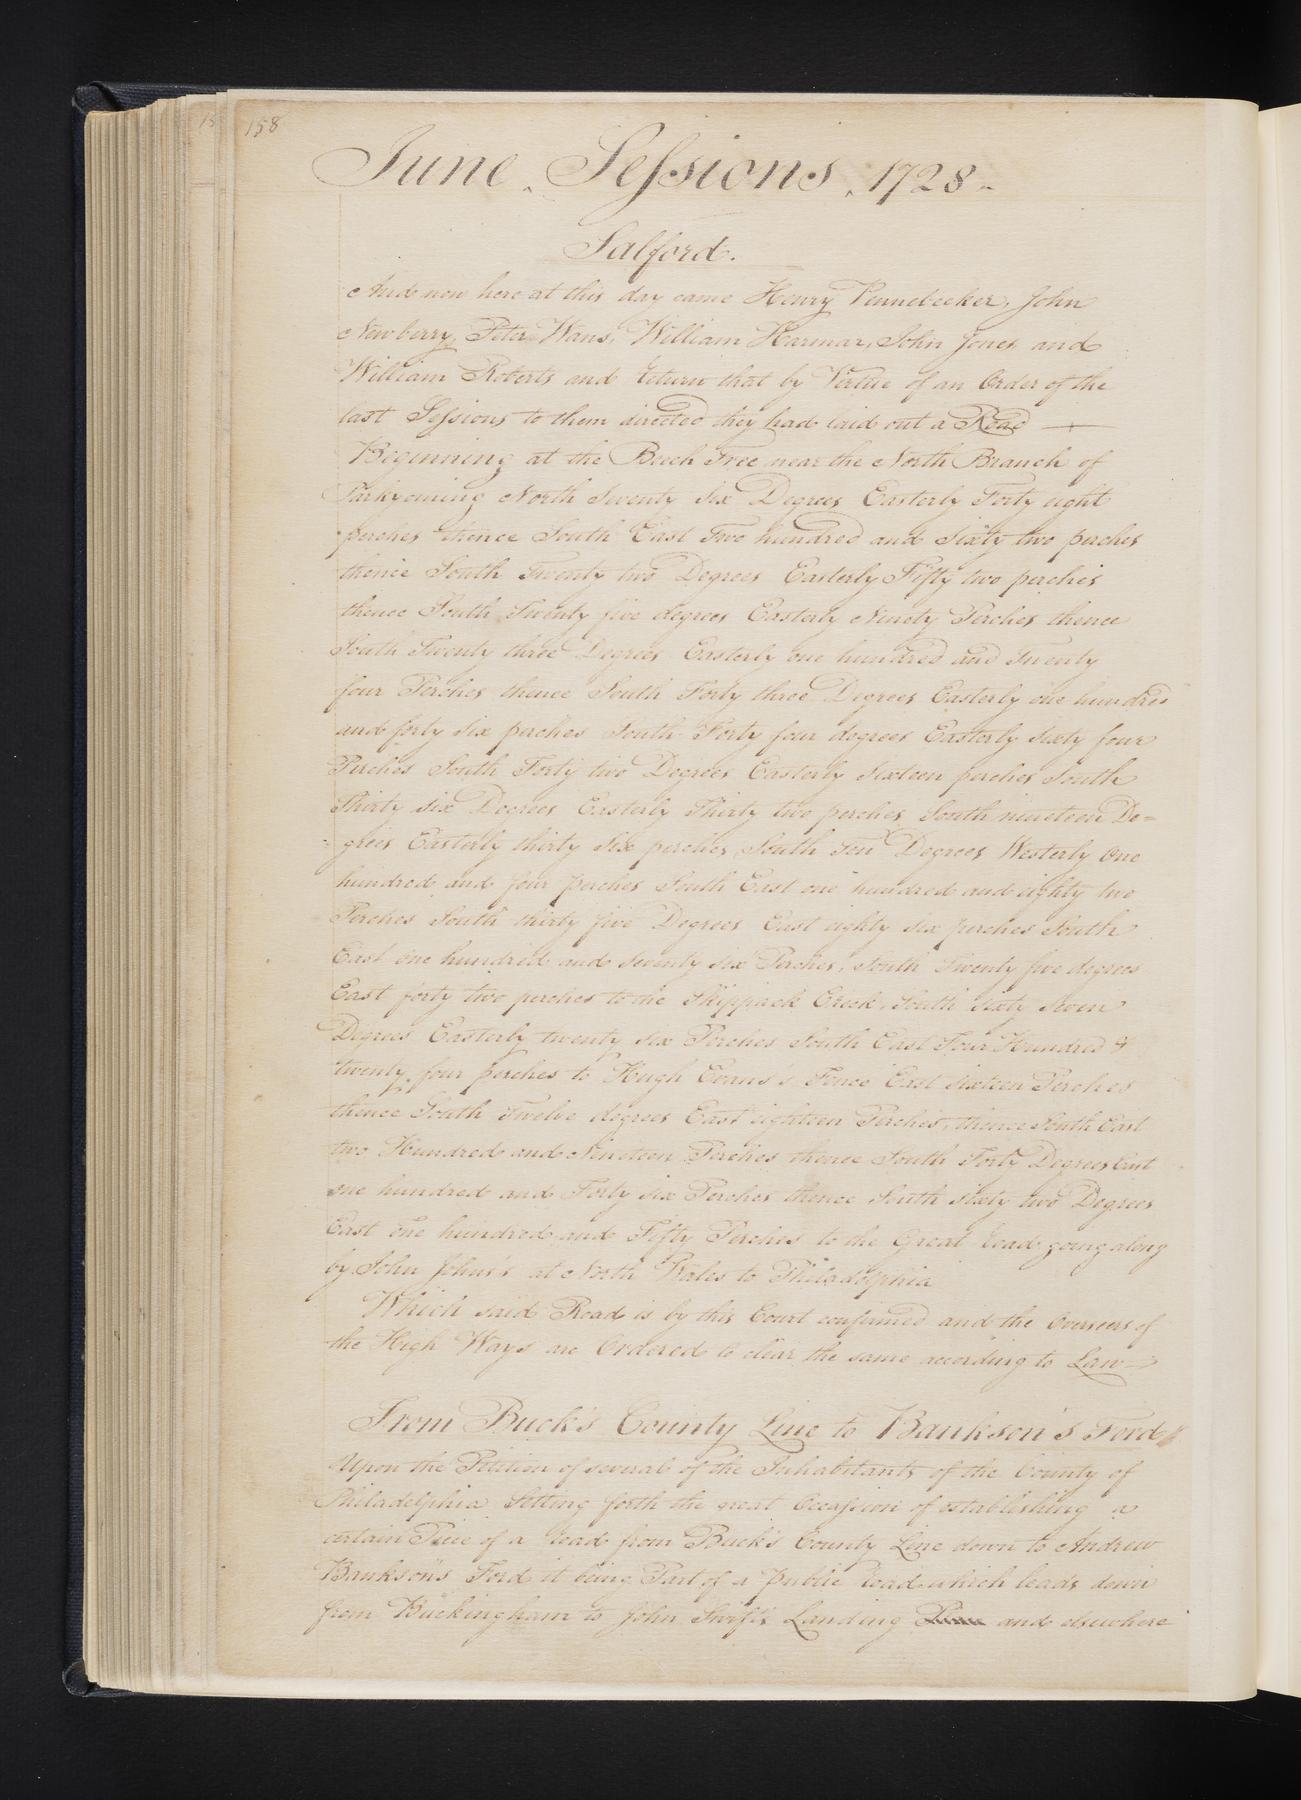 158
June Sessions 1728
Salford.
And now here at this day came Henry Pennebecker, John
Newberry, Peter Wans, William Harmar, John Jones and
William Roberts and return that by Virtue of an Order of the
last Sessions to them directed they had laid out a Road
Beginning at the Beech Tree near the North Branch of
Parkyoming North Seventy six Degrees Easterly Forty eight
perches thence South East Two hundred and sixty two perches
thence South Twenty two Degrees Easterly Fifty two perches
thence South Twenty five degrees Easterly Ninety Perches thence
South Twenty three Degrees Easterly one hundred and Twenty
four Perches thence South Forty three Degrees Easterly one hundred
and forty six perches South Forty four degrees Easterly Sixty four
Perches South Forty two Degrees Easterly Sixteen perches South
Thirty six Degrees Easterly Thirty two perches South nineteen De=
grees Easterly thirty six perches South Ten Degrees Westerly One
hundred and four perches South East one hundred and eighty two
Perches South thirty five Degrees East eighty six perches South
East one hundred and seventy six Perches, South Twenty five degrees
East forty two perches to the Skippack Creek, South sixty seven
Degrees Easterly twenty six Perches South East Four Hundred &
twenty four perches to Hugh Evans's Fence East sixteen Perches
thence South Twelve degrees East eighteen Perches, thence South East
two Hundred and Nineteen Perches thence South Forty Degrees East
one hundred and Forty six Perches thence South sixty two Degrees
East one hundred and Fifty Perches to the Great road going along
by John Johns's at North Wales to Philadelphia
Which said Road is by this Court confirmed and the Overseers of
the High Ways are Ordered to clear the same according to Law
From Buck's County Line to Bankson's Ford
Upon the Petition of several of the Inhabitants of the County of
Philadelphia Setting forth the great Occassion of establishing a
certain Piece of a road from Buck's County Line down to Andrew
Bankson's Ford it being Part of a public road which leads down
from Buckingham to John Swift's Landing and elsewhere